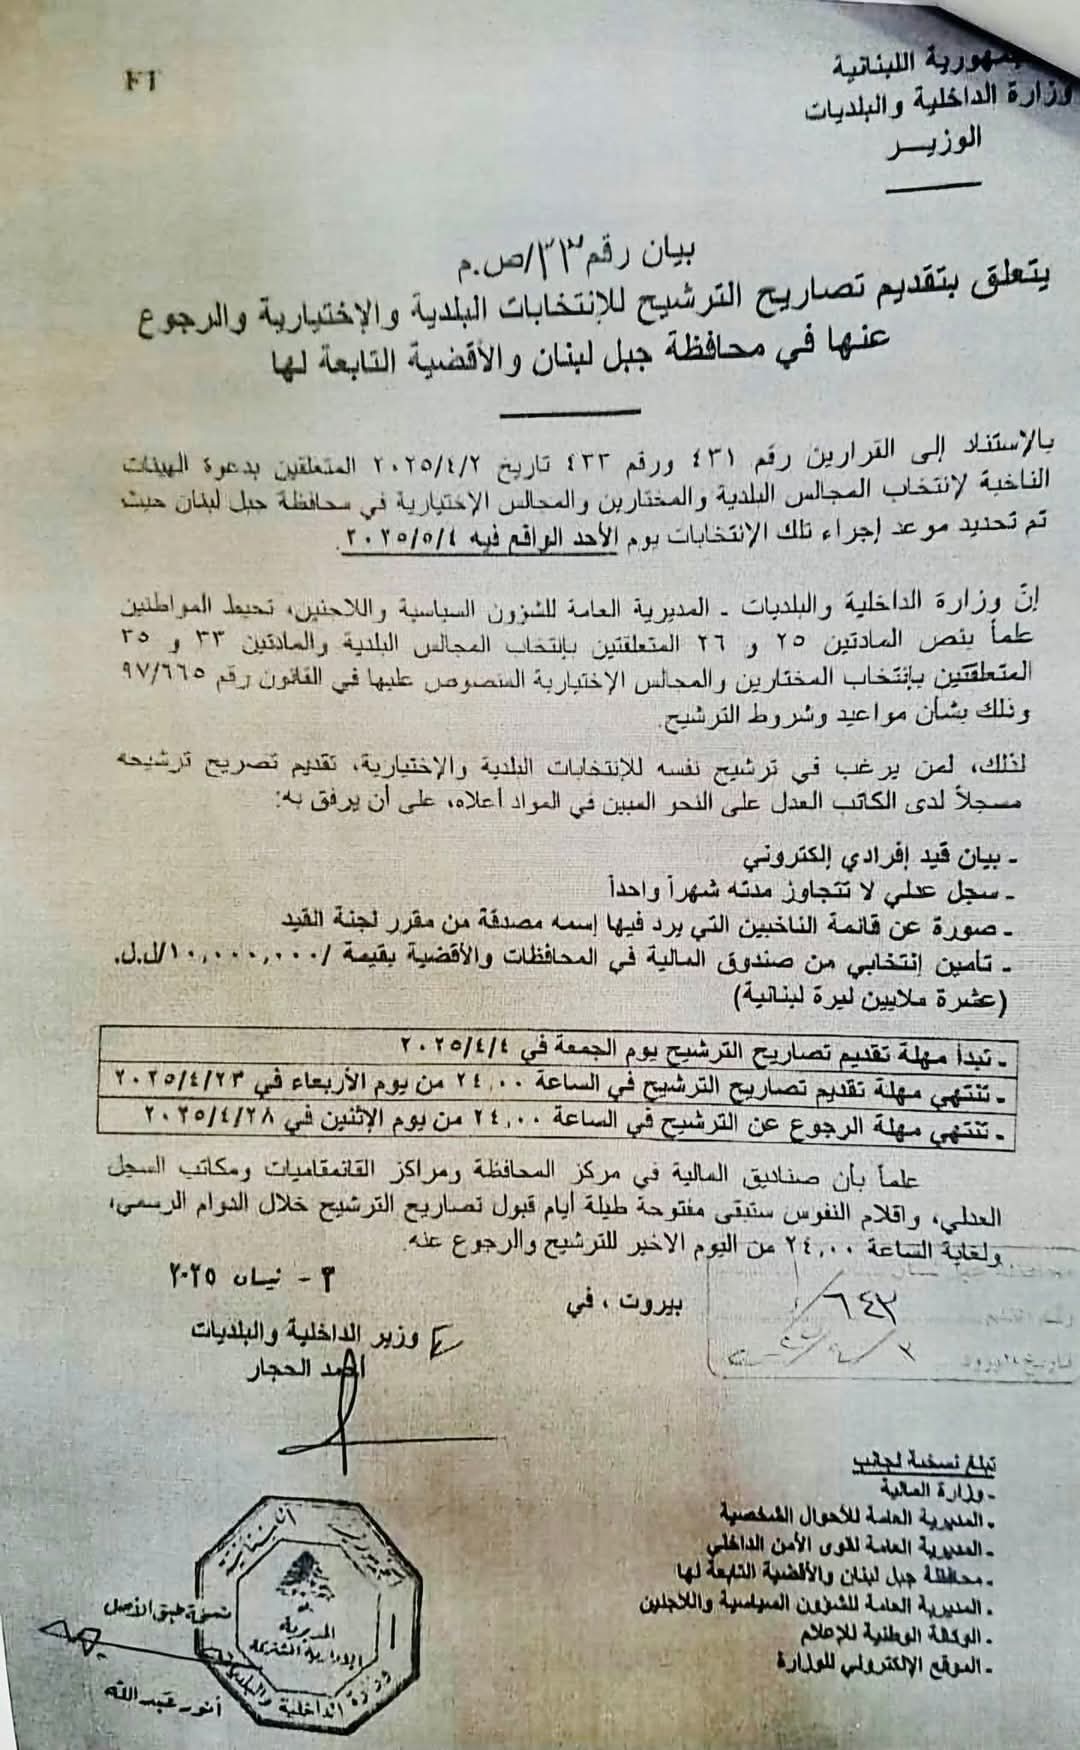 الجمهورية اللبنانية
وزارة الداخلية والبلديات
الوزيـــر
بيان رقم ٣٣/ص.م
يتعلق بتقديم تصاريح الترشيح للإنتخابات البلدية والإختيارية والرجوع
عنها في محافظة جبل لبنان والأقضية التابعة لها
بالإستناد إلى القرارين رقم ٤٣١ ورقم ٤٣٣ تاريخ ٢٠٢٥/٤/٢ المتعلقين بدعوة الهيئات
الناخبة لإنتخاب المجالس البلدية والمختارين والمجالس الإختيارية في محافظة جبل لبنان حيث
تم تحديد موعد إجراء تلك الإنتخابات يوم الأحد الواقع فيه ٢٠٢٥/٥/٤.
إنّ وزارة الداخلية والبلديات - المديرية العامة للشؤون السياسية واللاجئين، تحيط المواطنين
علماً بنص المادتين ٢٥ و ٢٦ المتعلقتين بإنتخاب المجالس البلدية والمادتين ٣٣ و ٣٥
المتعلقتين بإنتخاب المختارين والمجالس الإختيارية المنصوص عليها في القانون رقم ٩٧/٦٦٥
وذلك بشأن مواعيد وشروط الترشيح.
لذلك، لمن يرغب في ترشيح نفسه للإنتخابات البلدية والإختيارية، تقديم تصريح ترشيحه
مسجلاً لدى الكاتب العدل على النحو المبين في المواد أعلاه، على أن يرفق به:
- بيان قيد إفرادي إلكتروني
- سجل عدلي لا تتجاوز مدته شهراً واحداً
- صورة عن قائمة الناخبين التي يرد فيها إسمه مصدقة من مقرر لجنة القيد
- تأمين إنتخابي من صندوق المالية في المحافظات والأقضية بقيمة /١٠,٠٠٠,٠٠٠/ل.ل.
(عشرة ملايين ليرة لبنانية)
- تبدأ مهلة تقديم تصاريح الترشيح يوم الجمعة في ٢٠٢٥/٤/٤
- تنتهي مهلة تقديم تصاريح الترشيح في الساعة ٢٤,٠٠ من يوم الأربعاء في ٢٠٢٥/٤/٢٣
- تنتهي مهلة الرجوع عن الترشيح في الساعة ٢٤,٠٠ من يوم الإثنين في ٢٠٢٥/٤/٢٨
علماً بأن صناديق المالية في مركز المحافظة ومراكز القائمقاميات ومكاتب السجل
العدلي، واقلام النفوس ستبقى مفتوحة طيلة أيام قبول تصاريح الترشيح خلال الدوام الرسمي،
ولغاية الساعة ٢٤,٠٠ من اليوم الاخير للترشيح والرجوع عنه.
بيروت ، في
٣ - نيسان ٢٠٢٥
وزير الداخلية والبلديات
أحمد الحجار
٦٤٣
تبلغ نسخة لجانب
- وزارة المالية
- المديرية العامة للأحوال الشخصية
- المديرية العامة لقوى الأمن الداخلي
- محافظة جبل لبنان والأقضية التابعة لها
- المديرية العامة للشؤون السياسية واللاجئين
- الوكالة الوطنية للإعلام
- الموقع الإلكتروني للوزارة
نسخة طبق الأصل
أنور عبد الله
الجمهورية اللبنانية
المديرية
الإدارية المشتركة
وزارة الداخلية والبلديات